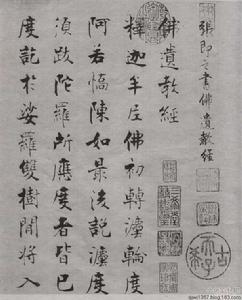 張即之書佛遺教經
佛遺教經
釋迦牟尼佛初轉灋輪度
阿若憍陳如最後說灋度
須跋陀羅所應度者皆已
度訖於娑羅雙樹間將入
古稀天子